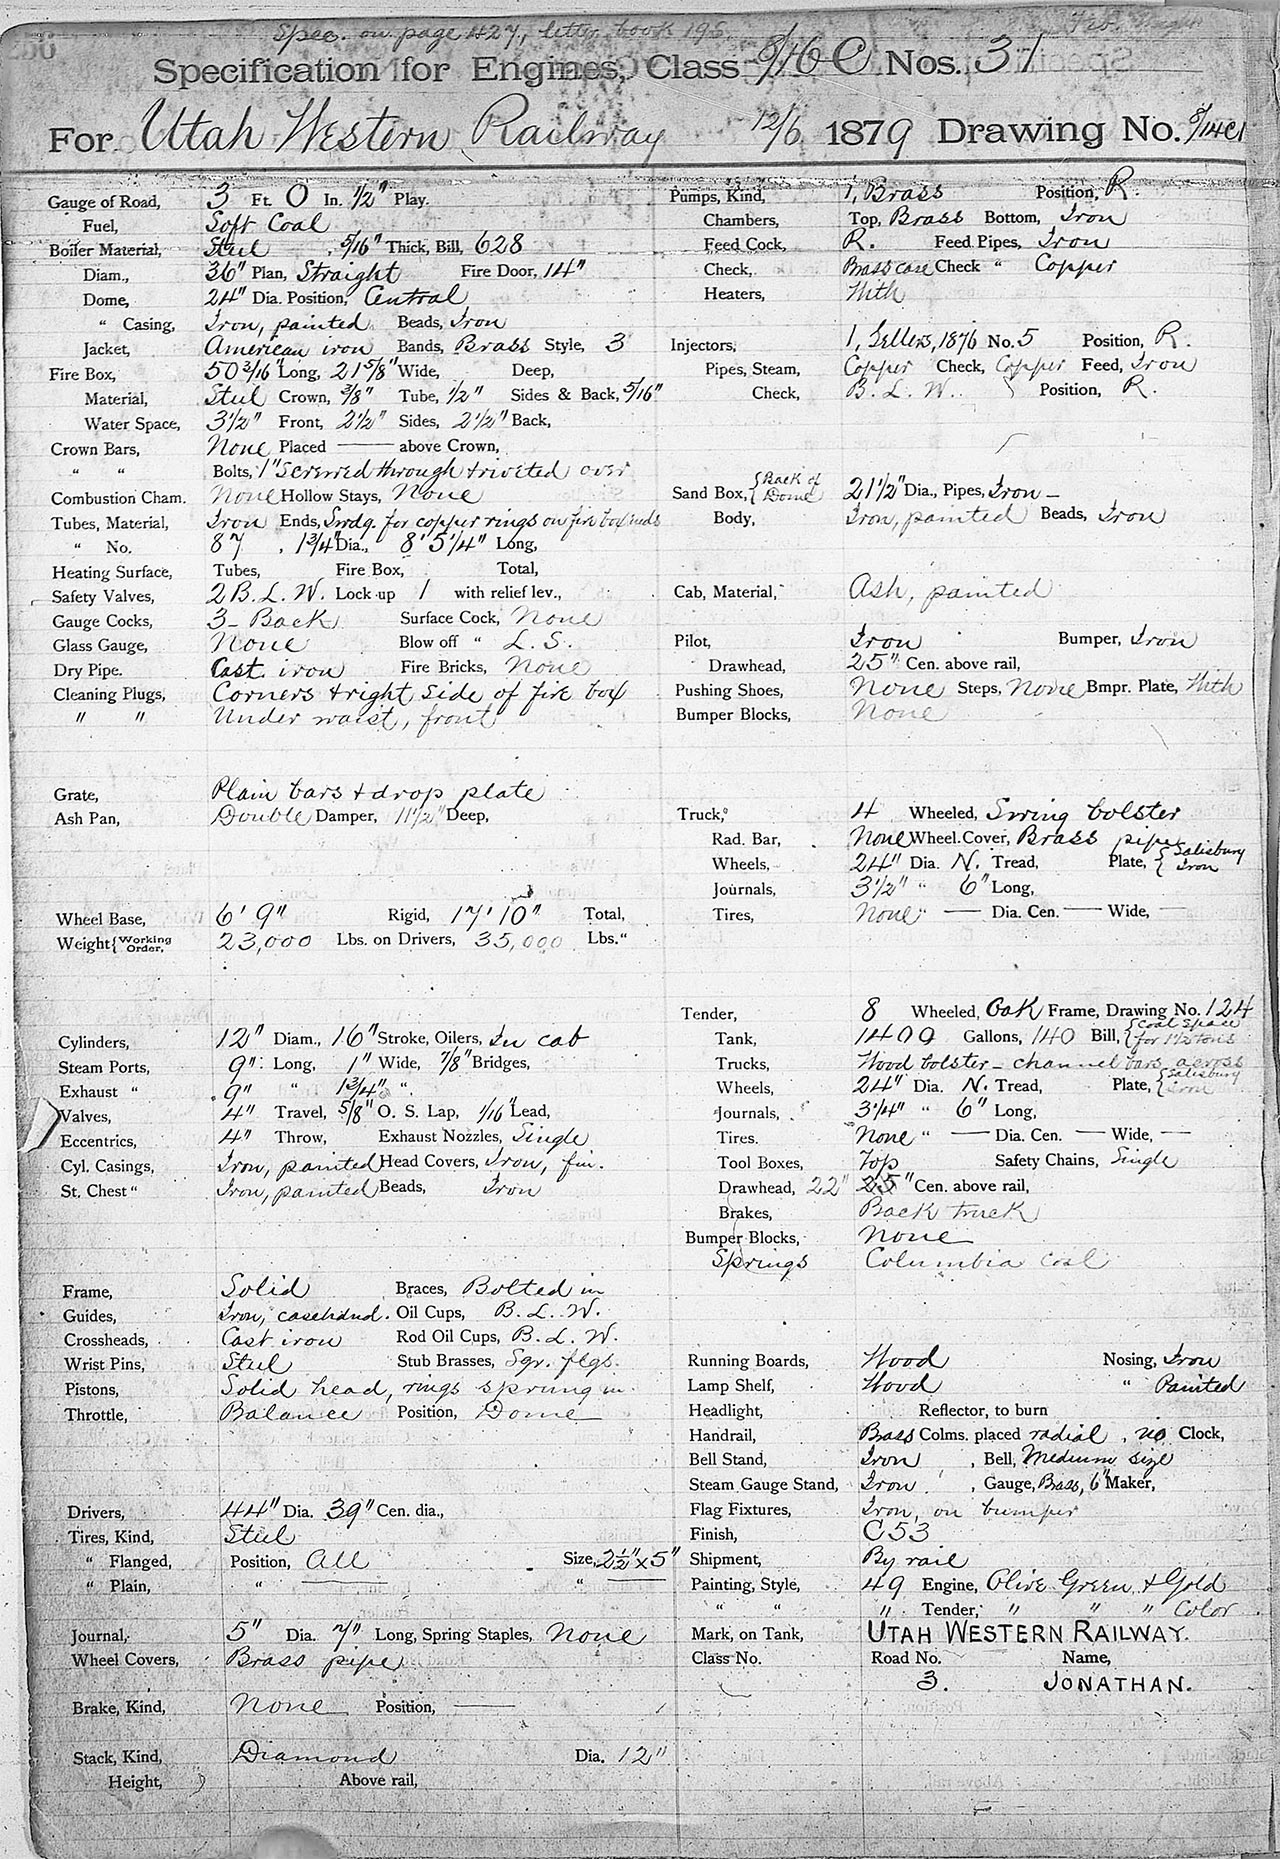 Spec. on page 427, letter book 196.
Specification for Engines, Class 8/16 C Nos. 31
For Utah Western Railway 12/6 1879 Drawing No. 8/14C1
Gauge of Road, 3 Ft. 0 In. 1/2" Play.
Fuel, Soft Coal
Boiler Material, Steel, 5/16" Thick, Bill, 628
Diam., 36" Plan, Straight Fire Door, 14"
Dome, 24" Dia. Position, Central
" Casing, Iron, painted Beads, Iron
Jacket, American iron Bands, Brass Style, 3
Fire Box, 50 3/16" Long, 21 5/8" Wide, Deep,
Material, Steel Crown, 3/8" Tube, 1/2" Sides & Back, 5/16"
Water Space, 3 1/2" Front, 2 1/2" Sides, 2 1/2" Back,
Crown Bars, None Placed — above Crown,
" " Bolts, 1" Screwed through & riveted over
Combustion Cham. None Hollow Stays, None
Tubes, Material, Iron Ends, Swdg. for copper rings on fire box ends
" No. 87, 1 3/4" Dia., 8' 5 1/4" Long,
Heating Surface, Tubes, Fire Box, Total,
Safety Valves, 2 B. L. W. Lock up 1 with relief lev.,
Gauge Cocks, 3 - Back Surface Cock, None
Glass Gauge, None Blow off " L. S.
Dry Pipe. Cast iron Fire Bricks, None
Cleaning Plugs, Corners & right side of fire box
" " Under waist, front
Grate, Plain bars & drop plate
Ash Pan, Double Damper, 11 1/2" Deep,
Wheel Base, 6' 9" Rigid, 17' 10" Total,
Weight { Working Order, 23,000 Lbs. on Drivers, 35,000 Lbs. "
Cylinders, 12" Diam., 16" Stroke, Oilers, In cab
Steam Ports, 9" Long, 1" Wide, 7/8" Bridges,
Exhaust " 9" " 1 3/4" "
Valves, 4" Travel, 5/8" O. S. Lap, 1/16" Lead,
Eccentrics, 4" Throw, Exhaust Nozzles, Single
Cyl. Casings, Iron, painted Head Covers, Iron, fin.
St. Chest " Iron, painted Beads, Iron
Frame, Solid Braces, Bolted in
Guides, Iron, casehand. Oil Cups, B. L. W.
Crossheads, Cast iron Rod Oil Cups, B. L. W.
Wrist Pins, Steel Stub Brasses, Sqr. flgs.
Pistons, Solid head, rings sprung in.
Throttle, Balance Position, Dome
Drivers, 44" Dia. 39" Cen. dia.,
Tires, Kind, Steel
" Flanged, Position, All Size, 2 1/2" x 5"
" Plain, " — " —
Journal, 5" Dia. 7" Long, Spring Staples, None
Wheel Covers, Brass pipe
Brake, Kind, None Position, —
Stack, Kind, Diamond Dia. 12"
Height, Above rail,
Pumps, Kind, 1, Brass Position, R.
Chambers, Top, Brass Bottom, Iron
Feed Cock, R. Feed Pipes, Iron
Check, Brass case Check " Copper
Heaters, With
Injectors, 1, Sellers, 1876 No. 5 Position, R.
Pipes, Steam, Copper Check, Copper Feed, Iron
Check, B. L. W. Position, R.
Sand Box, { Back of Dome } 21 1/2" Dia., Pipes, Iron -
Body, Iron, painted Beads, Iron
Cab, Material, Ash, painted
Pilot, Iron Bumper, Iron
Drawhead, 25" Cen. above rail,
Pushing Shoes, None Steps, None Bmpr. Plate, With
Bumper Blocks, None
Truck, 4 Wheeled, Swing bolster
Rad. Bar, None Wheel Cover, Brass pipe
Wheels, 24" Dia. N. Tread, Plate, { Salisbury Iron
Journals, 3 1/2" " 6" Long,
Tires, None " — Dia. Cen. — Wide, —
Tender, 8 Wheeled, Oak Frame, Drawing No. 124
Tank, 1400 Gallons, 140 Bill, { Coal space for 1 1/2 tons
Trucks, Wood bolster - channel bars across
Wheels, 24" Dia. N. Tread, Plate, { Salisbury iron
Journals, 3 1/4" " 6" Long,
Tires. None " — Dia. Cen. — Wide, —
Tool Boxes, Top Safety Chains, Single
Drawhead, 22" 25" Cen. above rail,
Brakes, Back truck
Bumper Blocks, None
Springs Columbia coil
Running Boards, Wood Nosing, Iron
Lamp Shelf, Wood " Painted
Headlight, Reflector, to burn
Handrail, Brass Colms. placed radial, no Clock,
Bell Stand, Iron, Bell, Medium size
Steam Gauge Stand, Iron, Gauge, Brass, 6" Maker,
Flag Fixtures, Iron, on bumper
Finish, C 53
Shipment, By rail
Painting, Style, 49 Engine, Olive Green & Gold
" " " Tender, " " " Color
Mark, on Tank, UTAH WESTERN RAILWAY.
Class No. Road No. Name,
3. JONATHAN.